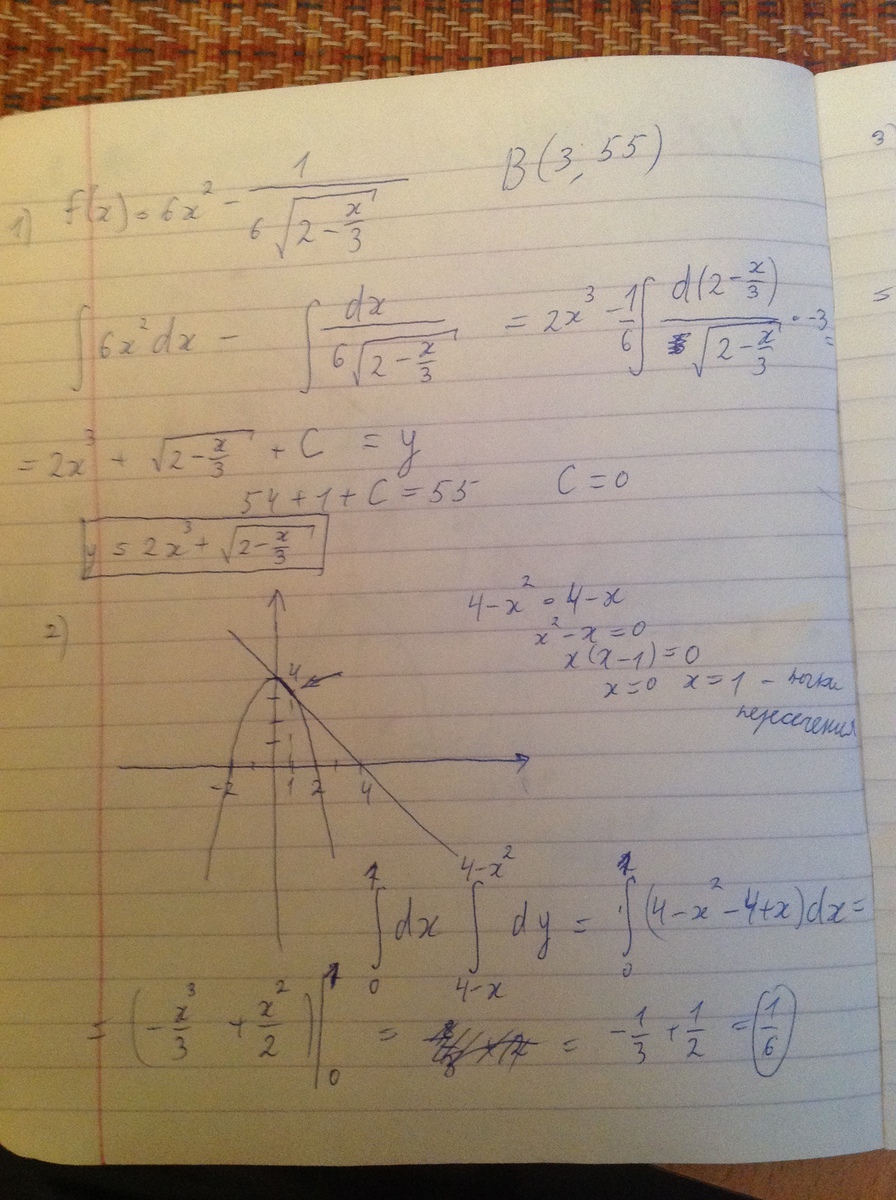 1) f(x) = 6x² - 1/(6√(2 - x/3)) B(3; 55)
∫6x²dx - ∫dx/(6√(2 - x/3)) = 2x³ - 1/6 ∫d(2 - x/3)/√(2 - x/3) · -3 =
= 2x³ + √(2 - x/3) + C = y
54 + 1 + C = 55 C = 0
y = 2x³ + √(2 - x/3)
2)
4 - x² = 4 - x
x² - x = 0
x(x - 1) = 0
x = 0 x = 1 - точки
пересечения
4
-2 1 2 4
∫₀¹ dx ∫_{4-x}^{4-x²} dy = ∫₀¹ (4 - x² - 4 + x)dx =
= (-x³/3 + x²/2)|₀¹ = = -1/3 + 1/2 = 1/6
3)